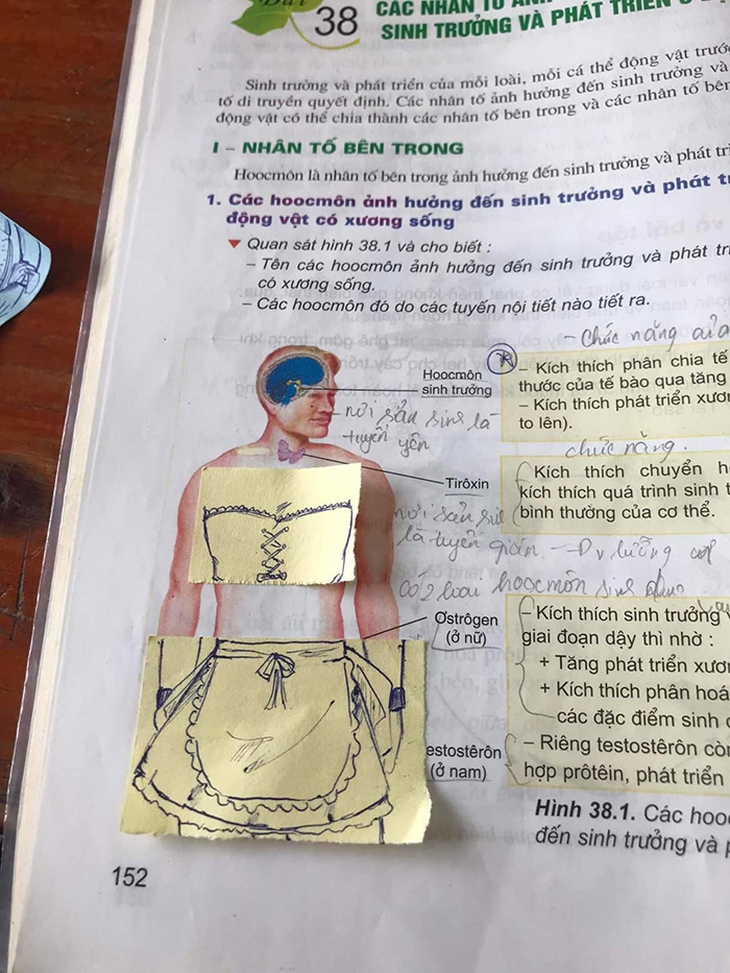 38
CÁC NHÂN TỐ
SINH TRƯỞNG VÀ PHÁT TRIỂN
Sinh trưởng và phát triển của mỗi loài, mỗi cá thể động vật trước
tố di truyền quyết định. Các nhân tố ảnh hưởng đến sinh trưởng và
động vật có thể chia thành các nhân tố bên trong và các nhân tố bên
I – NHÂN TỐ BÊN TRONG
Hoocmôn là nhân tố bên trong ảnh hưởng đến sinh trưởng và phát tri
1. Các hoocmôn ảnh hưởng đến sinh trưởng và phát t
động vật có xương sống
▼ Quan sát hình 38.1 và cho biết :
– Tên các hoocmôn ảnh hưởng đến sinh trưởng và phát tr
có xương sống.
– Các hoocmôn đó do các tuyến nội tiết nào tiết ra.
– Chức năng của
Hoocmôn
sinh trưởng
– nơi sản sinh là
tuyến yên
– Kích thích phân chia tế
thước của tế bào qua tăng
– Kích thích phát triển xươ
to lên).
chức năng.
Tirôxin
Kích thích chuyển h
kích thích quá trình sinh t
bình thường của cơ thể.
nơi sản
là tuyến giáp
hoocmôn sinh
Ơstrôgen
(ở nữ)
– Kích thích sinh trưởng
giai đoạn dậy thì nhờ :
+ Tăng phát triển xươ
+ Kích thích phân hoá
các đặc điểm sinh
estostêrôn
(ở nam)
– Riêng testostêrôn còn
hợp prôtêin, phát triển
Hình 38.1. Các hoo
đến sinh trưởng và p
152